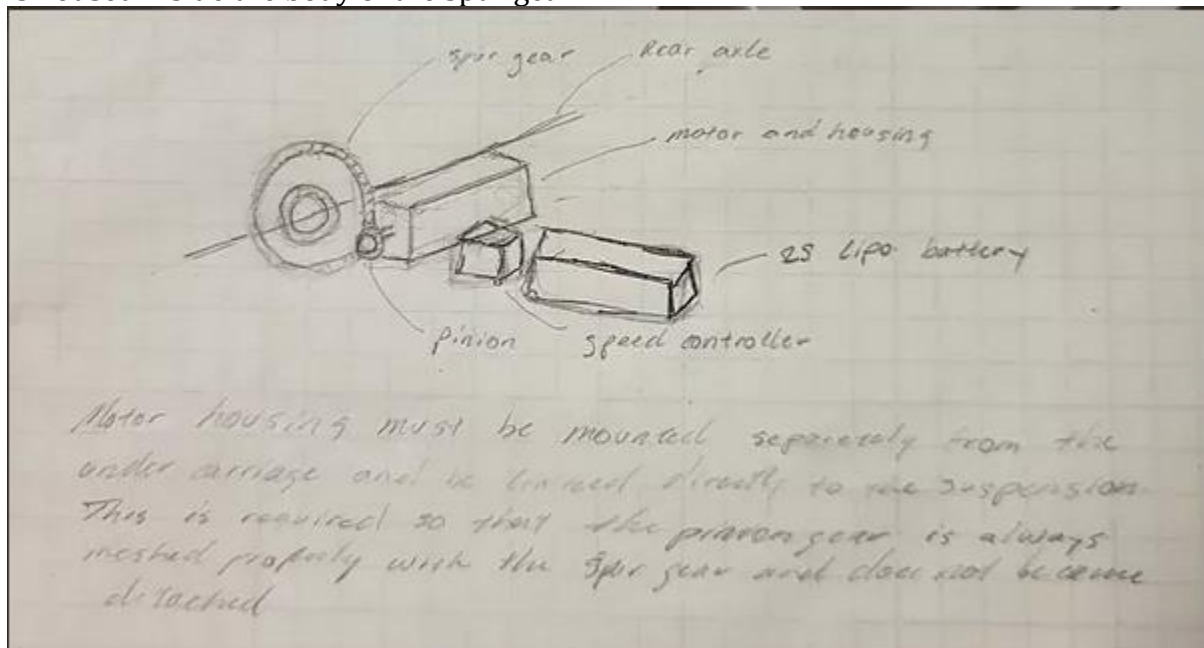 spur gear
Rear axle
motor and housing
2S Lipo battery
pinion
speed controller
Motor housing must be mounted separately from the
under carriage and be linked directly to the suspension.
This is required so that the pinion gear is always
meshed properly with the spur gear and does not become
detached